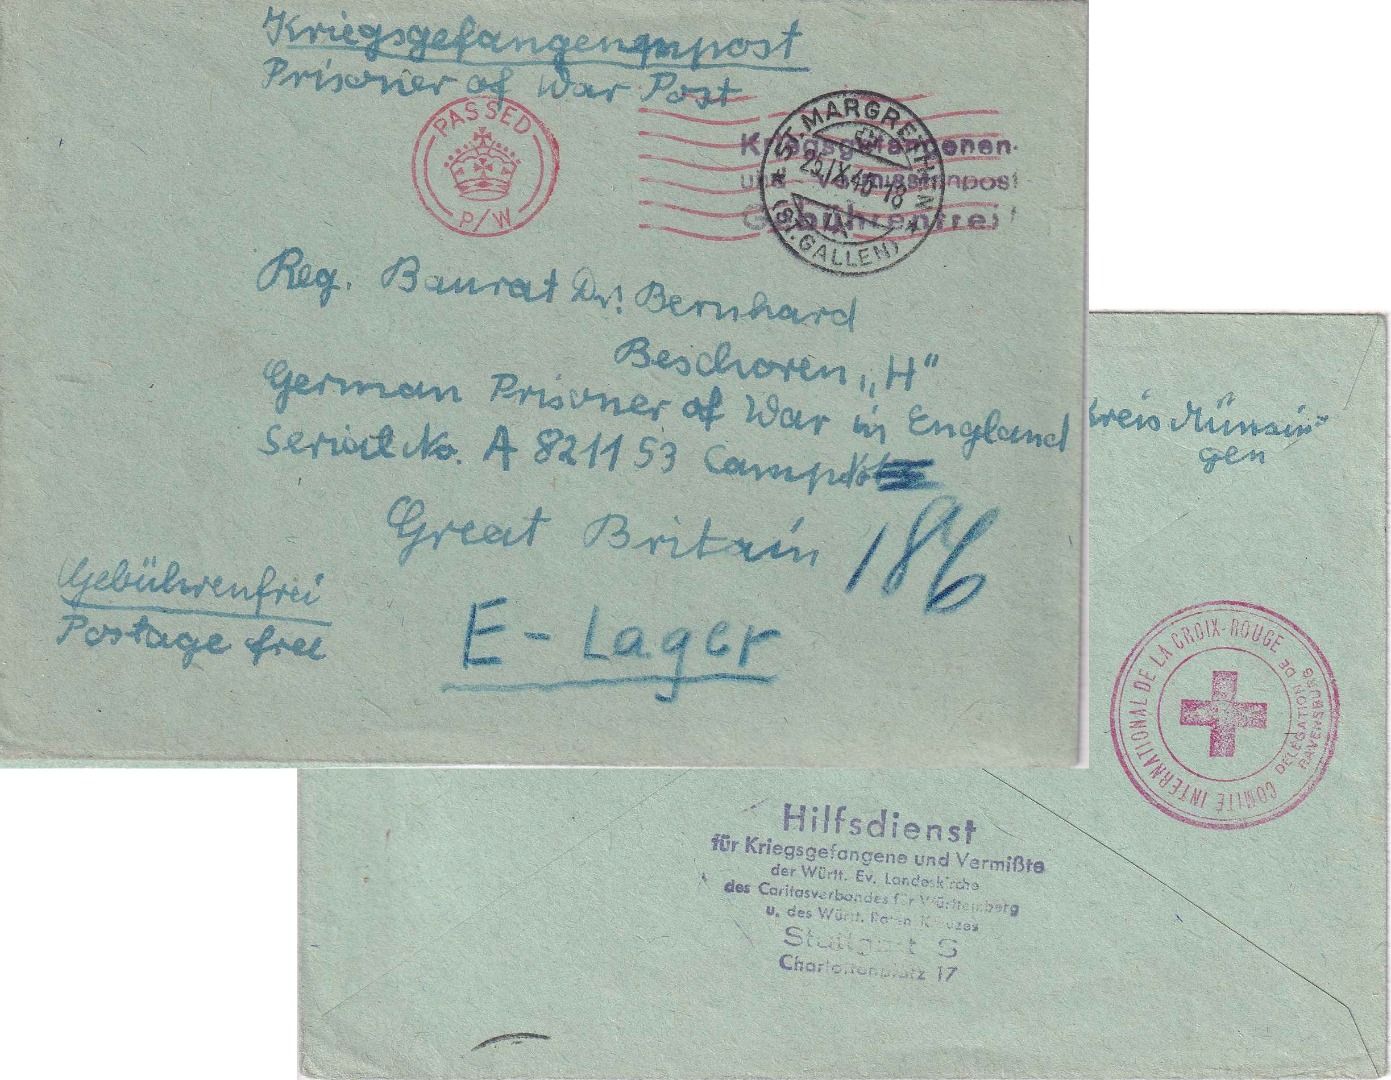 Kriegsgefangenenpost
Prisoner of War Post
PASSED
P/W
ST. MARGRETHEN
25.IX.45-18
(ST. GALLEN)
Kriegsgefangenen-
und Vermisstenpost
Gebührenfrei!
Reg. Baurat Dr. Bernhard
Beschoren „H"
German Prisoner of War in England
Serial No. A 821153 Camp
186
Great Britain
Gebührenfrei
Postage free
E-Lager
Kreis Münsin-
gen
COMITÉ INTERNATIONAL DE LA CROIX-ROUGE
DÉLÉGATION DE
RAVENSBURG
Hilfsdienst
für Kriegsgefangene und Vermißte
der Württ. Ev. Landeskirche
des Caritasverbandes für Württemberg
u. des Württ. Roten Kreuzes
Stuttgart S
Charlottenplatz 17